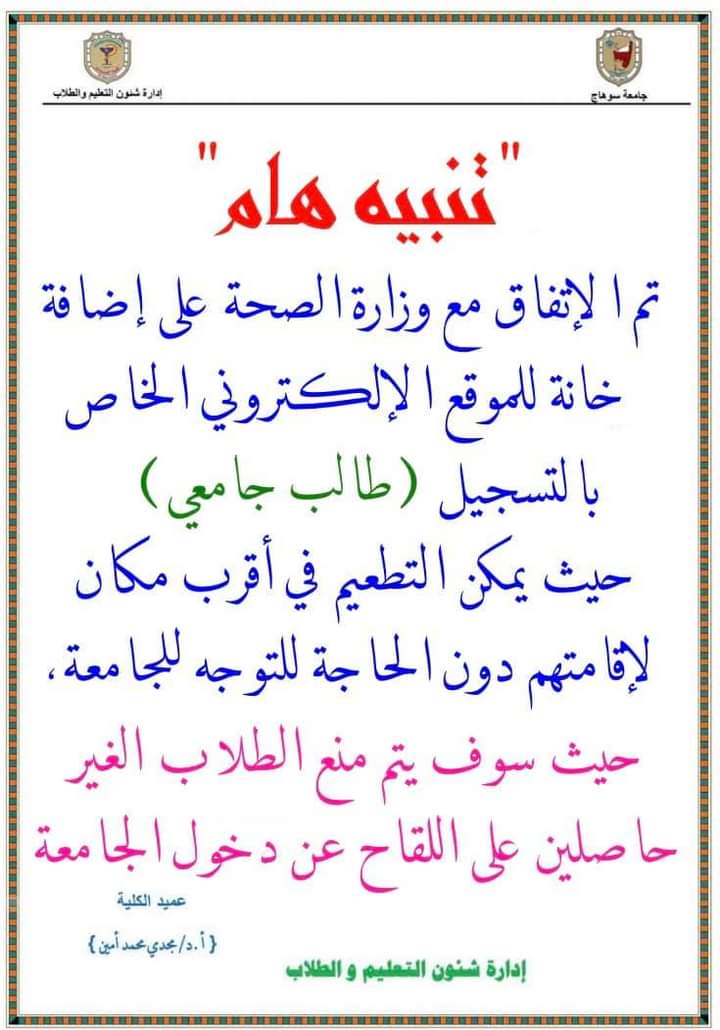 جامعة سوهاج
إدارة شئون التعليم والطلاب
"تنبيه هام"
تم الإتفاق مع وزارة الصحة على إضافة
خانة للموقع الإلكتروني الخاص
بالتسجيل (طالب جامعي)
حيث يمكن التطعيم في أقرب مكان
لإقامتهم دون الحاجة للتوجه للجامعة،
حيث سوف يتم منع الطلاب الغير
حاصلين على اللقاح عن دخول الجامعة
عميد الكلية
{أ.د/مجدي محمد أمين}
إدارة شئون التعليم و الطلاب